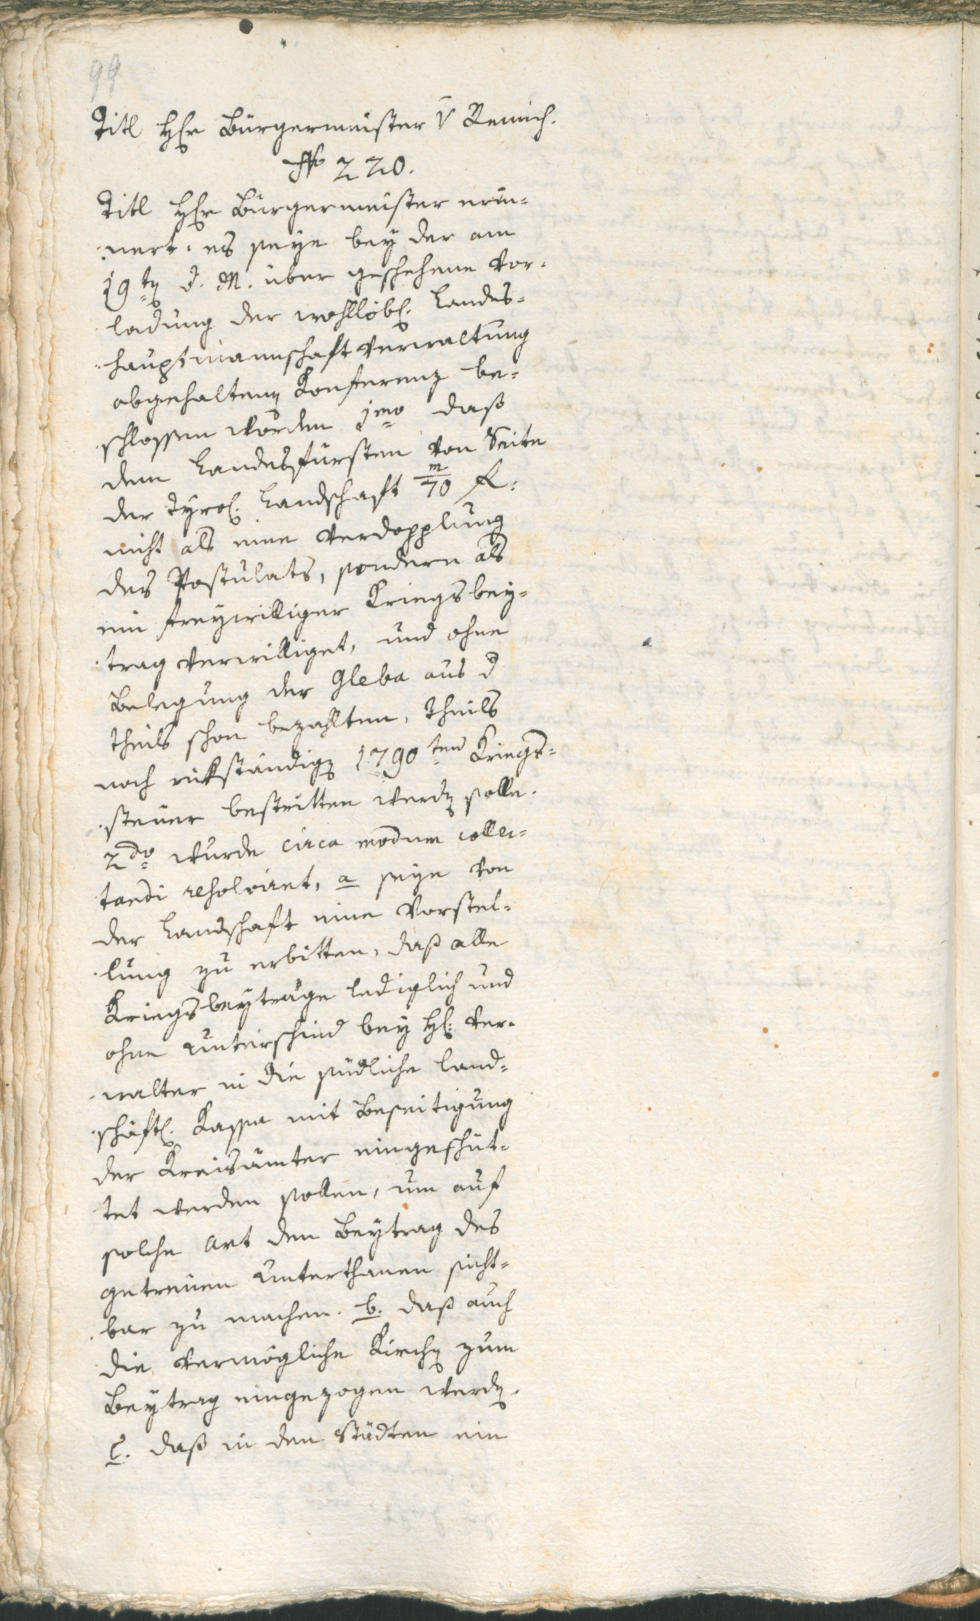 99
Titl Hr Bürgermeister v Remich.
No 220.
Titl Hr Bürgermeister erin-
nert: es seye bey der am
19ten d. M. über geschehene Vor-
ladung der wohllöbl. Landes-
hauptmannschaft Verwaltung
abgehaltenen Konferenz be-
schlossen worden 1mo daß
dem Landesfürsten von Seite
der Tyrol. Landschaft m/70 f.
nicht als eine Verdopplung
des Postulats, sondern als
ein freywilliger Kriegsbey-
trag verwilliget, und ohne
Belegung der Gleba aus d
theils schon bezahlten, theils
noch rükständigen 1790ten Kriegs-
steuer bestritten werden solle.
2do wurde circa modum collec-
tandi resolviret, a seye von
der Landschaft eine Vorstel-
lung zu erbitten, daß alle
Kriegsbeyträge lediglich und
ohne Unterschied bey H. Ver-
walter in die südliche land-
schäftl. Kassa mit Beseitigung
der Kreisämter eingeschüt-
tet werden sollen, um auf
solche Art den Beytrag des
getreuen Unterthanen sicht-
bar zu machen. b. daß auch
die vermögliche Kirchen zum
Beytrag eingezogen werden.
c. daß in den Städten ein